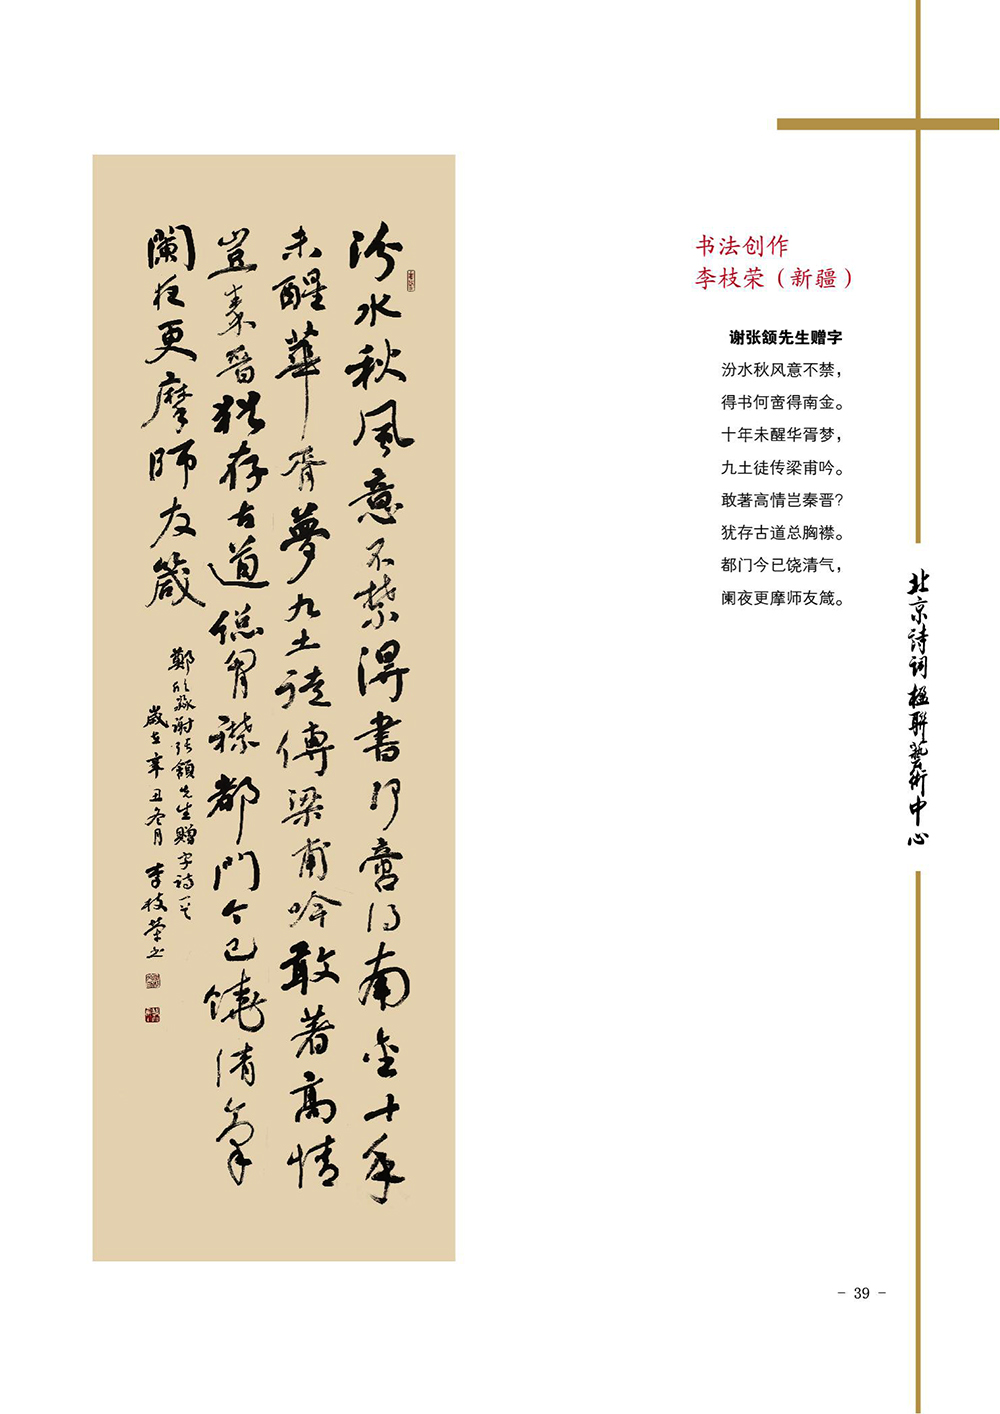 汾水秋風意不禁得書何啻得南金十年
未醒華胥夢九土徒傳梁甫吟敢著高情
豈秦晉猶存古道總胸襟都門今已饒清氣
闌夜更摩師友箴
鄭欣淼謝張頷先生贈字詩一首
歲在辛丑冬月 李枝榮書
书法创作
李枝荣（新疆）
谢张颔先生赠字
汾水秋风意不禁，
得书何啻得南金。
十年未醒华胥梦，
九土徒传梁甫吟。
敢著高情岂秦晋？
犹存古道总胸襟。
都门今已饶清气，
阑夜更摩师友箴。
北京詩詞楹聯藝術中心
- 39 -